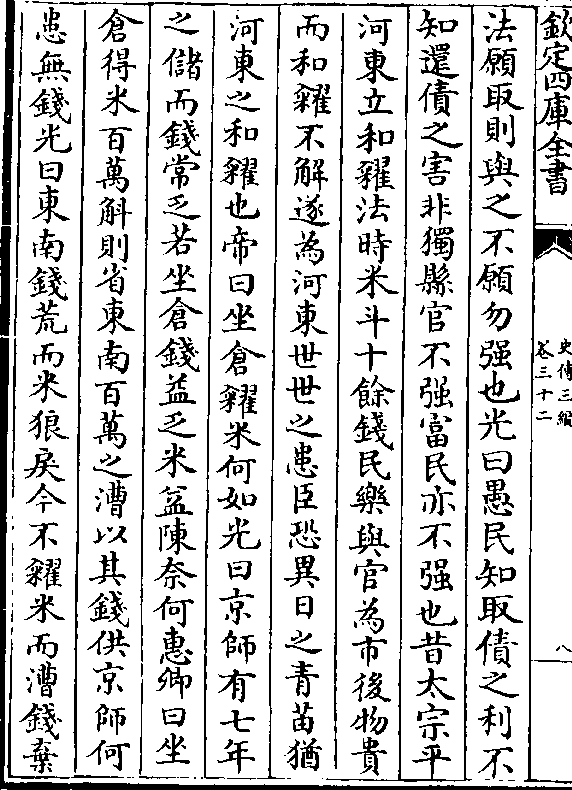 欽定四庫全書
史傳三編
卷三十二
八
法願取則與之不願勿强也光曰愚民知取債之利不
知還債之害非獨縣官不强富民亦不强也昔太宗平
河東立和糴法時米斗十餘錢民樂與官為市後物貴
而和糴不解遂為河東世世之患臣恐異日之青苗猶
河東之和糴也帝曰坐倉糴米何如光曰京師有七年
之儲而錢常乏若坐倉錢益乏米益陳奈何惠卿曰坐
倉得米百萬斛則省東南百萬之漕以其錢供京師何
患無錢光曰東南錢荒而米狼戾今不糴米而漕錢棄